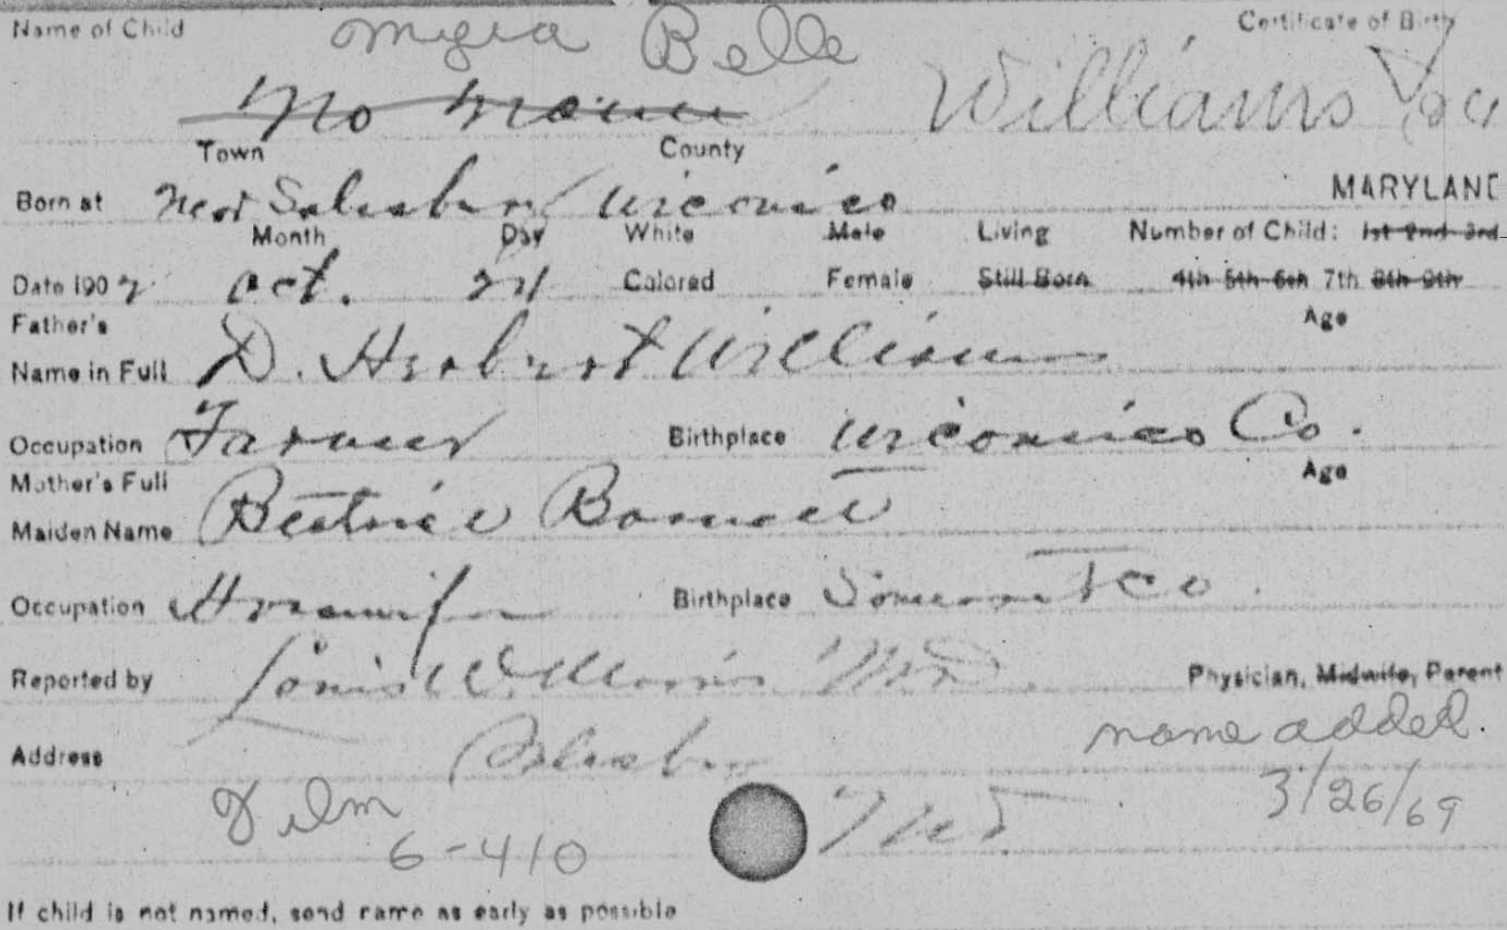 Name of Child Belle Certificate of Birth
No Name Williams
Town County
Born at Near Salisbury Wicomico MARYLAND
Month Day White Male Living Number of Child: 1st 2nd 3rd
Date 1902 Oct. 24 Colored Female Still Born 4th 5th 6th 7th 8th 9th
Father's Age
Name in Full D. Herbert Williams
Occupation Farmer Birthplace Wicomico Co.
Mother's Full Age
Maiden Name Beatrice
Occupation Housewife Birthplace Somerset Co
Reported by Louis W. Morris MD Physician, Midwife, Parent
name added.
Address Salisbury
Film 3/26/69
6-410 Md
If child is not named, send name as early as possible